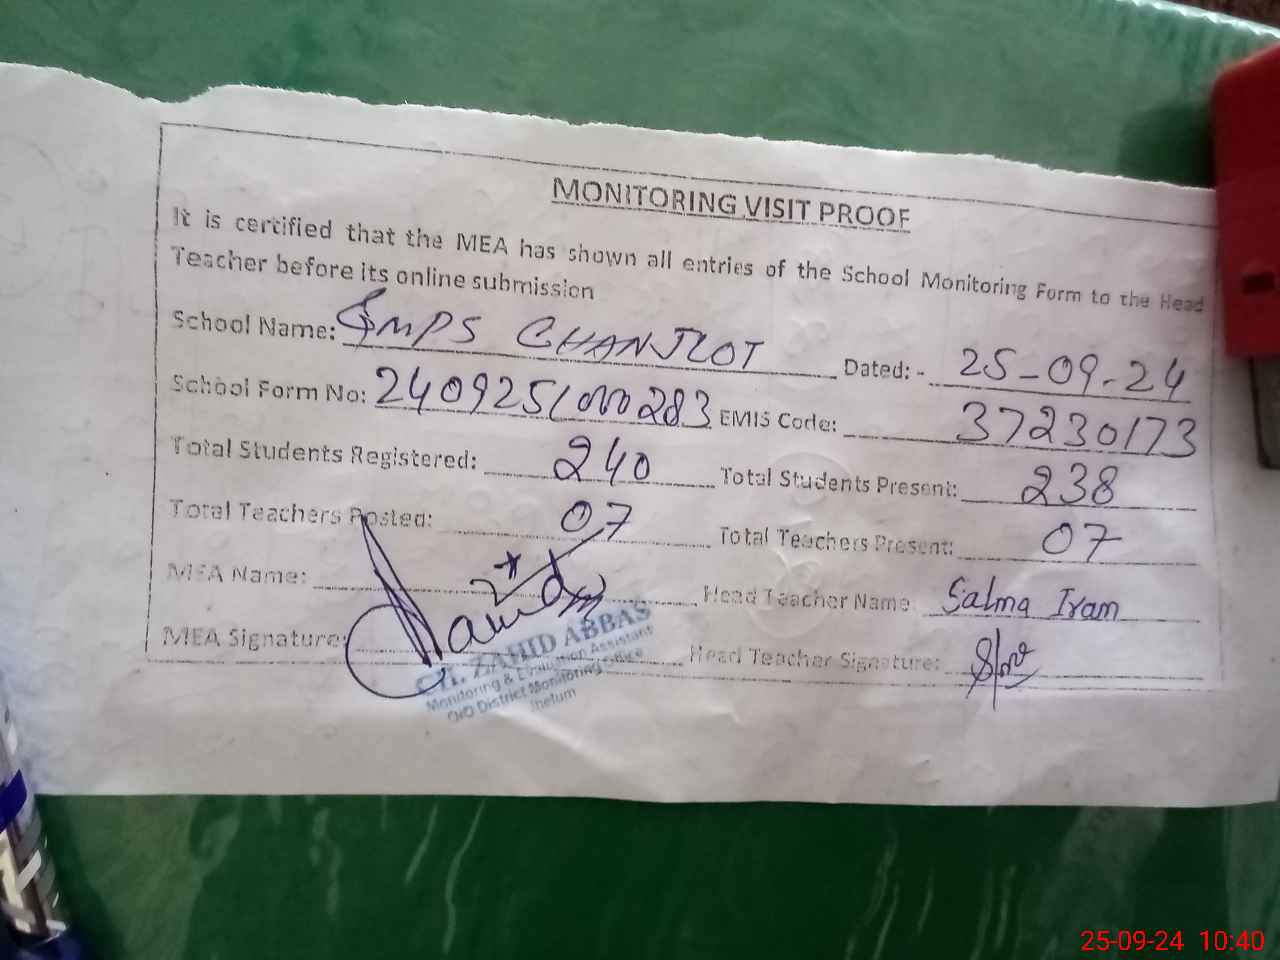 MONITORING VISIT PROOF
It is certified that the MEA has shown all entries of the School Monitoring Form to the Head
Teacher before its online submission
School Name: GMPS CHANJLOT Dated: - 25-09-24
School Form No: 240925/000283 EMIS Code: 37230173
Total Students Registered: 240 Total Students Present: 238
Total Teachers Posted: 07 Total Teachers Present: 07
MEA Name: Head Teacher Name Salma Iram
MEA Signature: Head Teacher Signature:
CH. ZAHID ABBAS
Monitoring & Evaluation Assistant
O/O District Monitoring Office
Jhelum
25-09-24 10:40